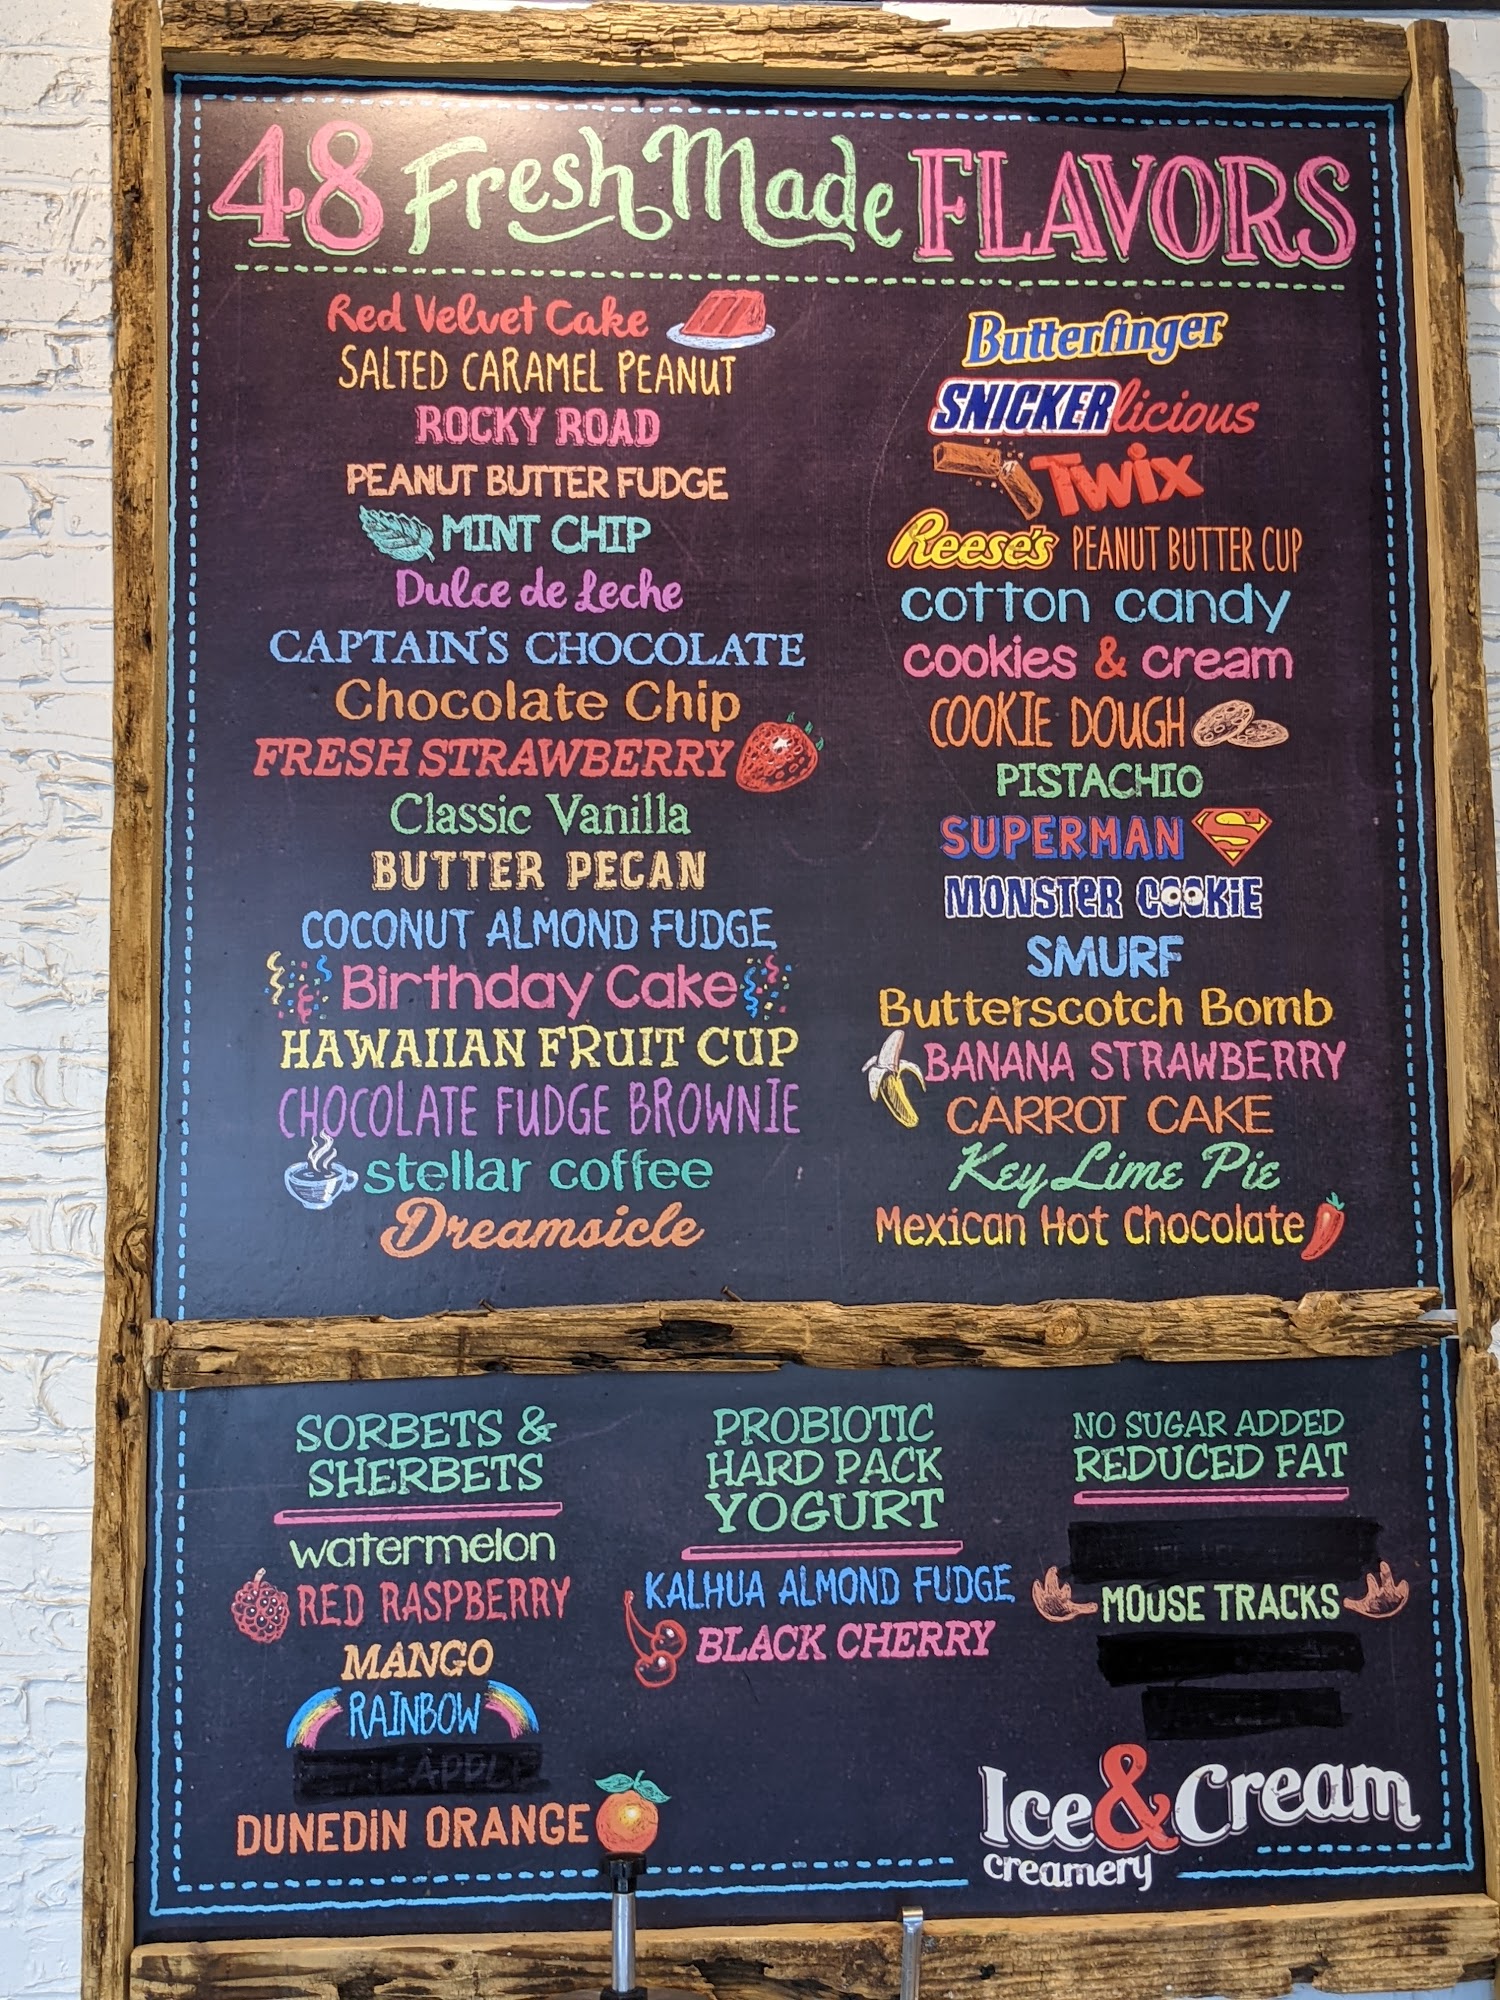 48 Fresh Made FLAVORS
Red Velvet Cake
SALTED CARAMEL PEANUT
ROCKY ROAD
PEANUT BUTTER FUDGE
MINT CHIP
Dulce de Leche
CAPTAIN'S CHOCOLATE
Chocolate Chip
FRESH STRAWBERRY
Classic Vanilla
BUTTER PECAN
COCONUT ALMOND FUDGE
Birthday Cake
HAWAIIAN FRUIT CUP
CHOCOLATE FUDGE BROWNIE
stellar coffee
Dreamsicle
Butterfinger
SNICKERlicious
Twix
Reese's PEANUT BUTTER CUP
cotton candy
cookies & cream
COOKIE DOUGH
PISTACHIO
SUPERMAN S
MONSTER COOKiE
SMURF
Butterscotch Bomb
BANANA STRAWBERRY
CARROT CAKE
Key Lime Pie
Mexican Hot Chocolate
SORBETS &
SHERBETS
watermelon
RED RASPBERRY
MANGO
RAINBOW
DUNEDiN ORANGE
PROBIOTIC
HARD PACK
YOGURT
KALHUA ALMOND FUDGE
BLACK CHERRY
NO SUGAR ADDED
REDUCED FAT
MOUSE TRACKS
Ice&Cream
creamery